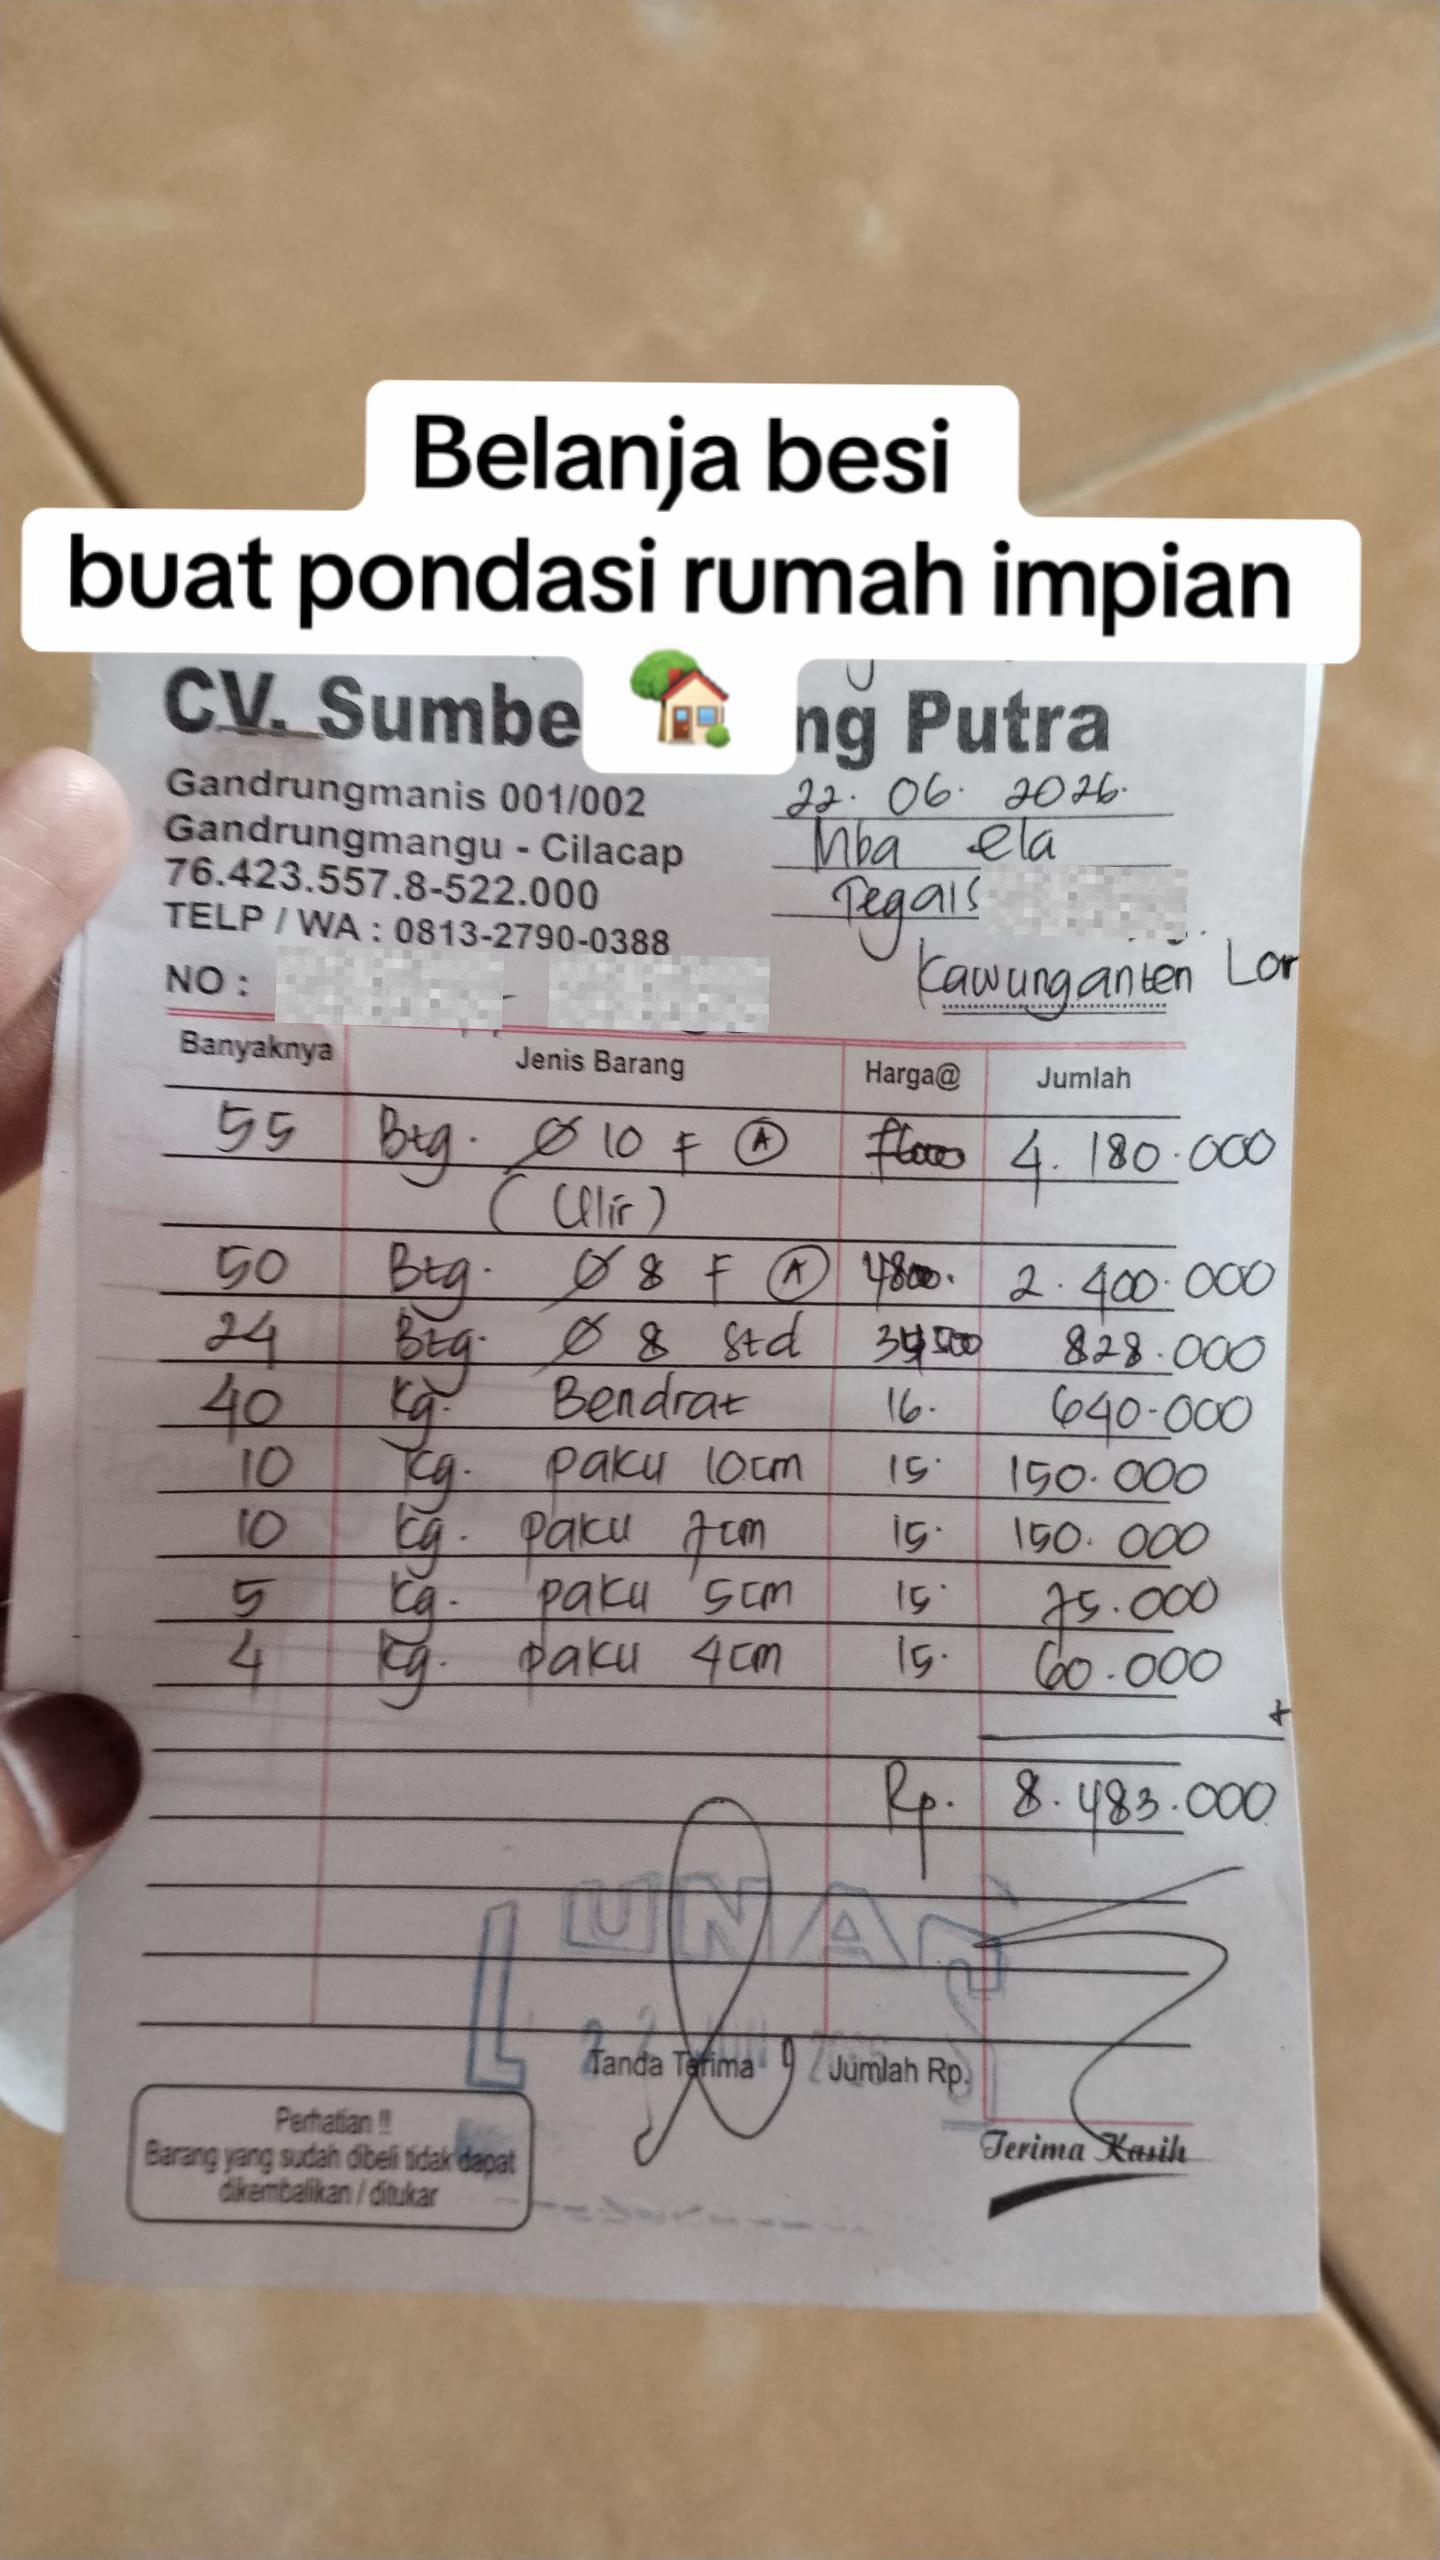 Belanja besi
buat pondasi rumah impian
CV. Sumbe ng Putra
Gandrungmanis 001/002
Gandrungmangu - Cilacap
76.423.557.8-522.000
TELP / WA : 0813-2790-0388
NO :
22. 06. 2026.
Mba ela
Tegals
Kawunganten Lor
Banyaknya Jenis Barang Harga@ Jumlah
55 Btg. Ø 10 F A 4.180.000
(Ulir)
50 Btg. Ø 8 F A 2.400.000
24 Btg. Ø 8 Std 34500 828.000
40 Kg. Bendrat 16. 640.000
10 Kg. paku 10cm 15. 150.000
10 Kg. paku 7cm 15. 150.000
5 Kg. paku 5cm 15. 75.000
4 Kg. paku 4cm 15. 60.000
+
Rp. 8.483.000
LUNAS
Tanda Terima Jumlah Rp.
Perhatian !!
Barang yang sudah dibeli tidak dapat
dikembalikan / ditukar
Terima Kasih